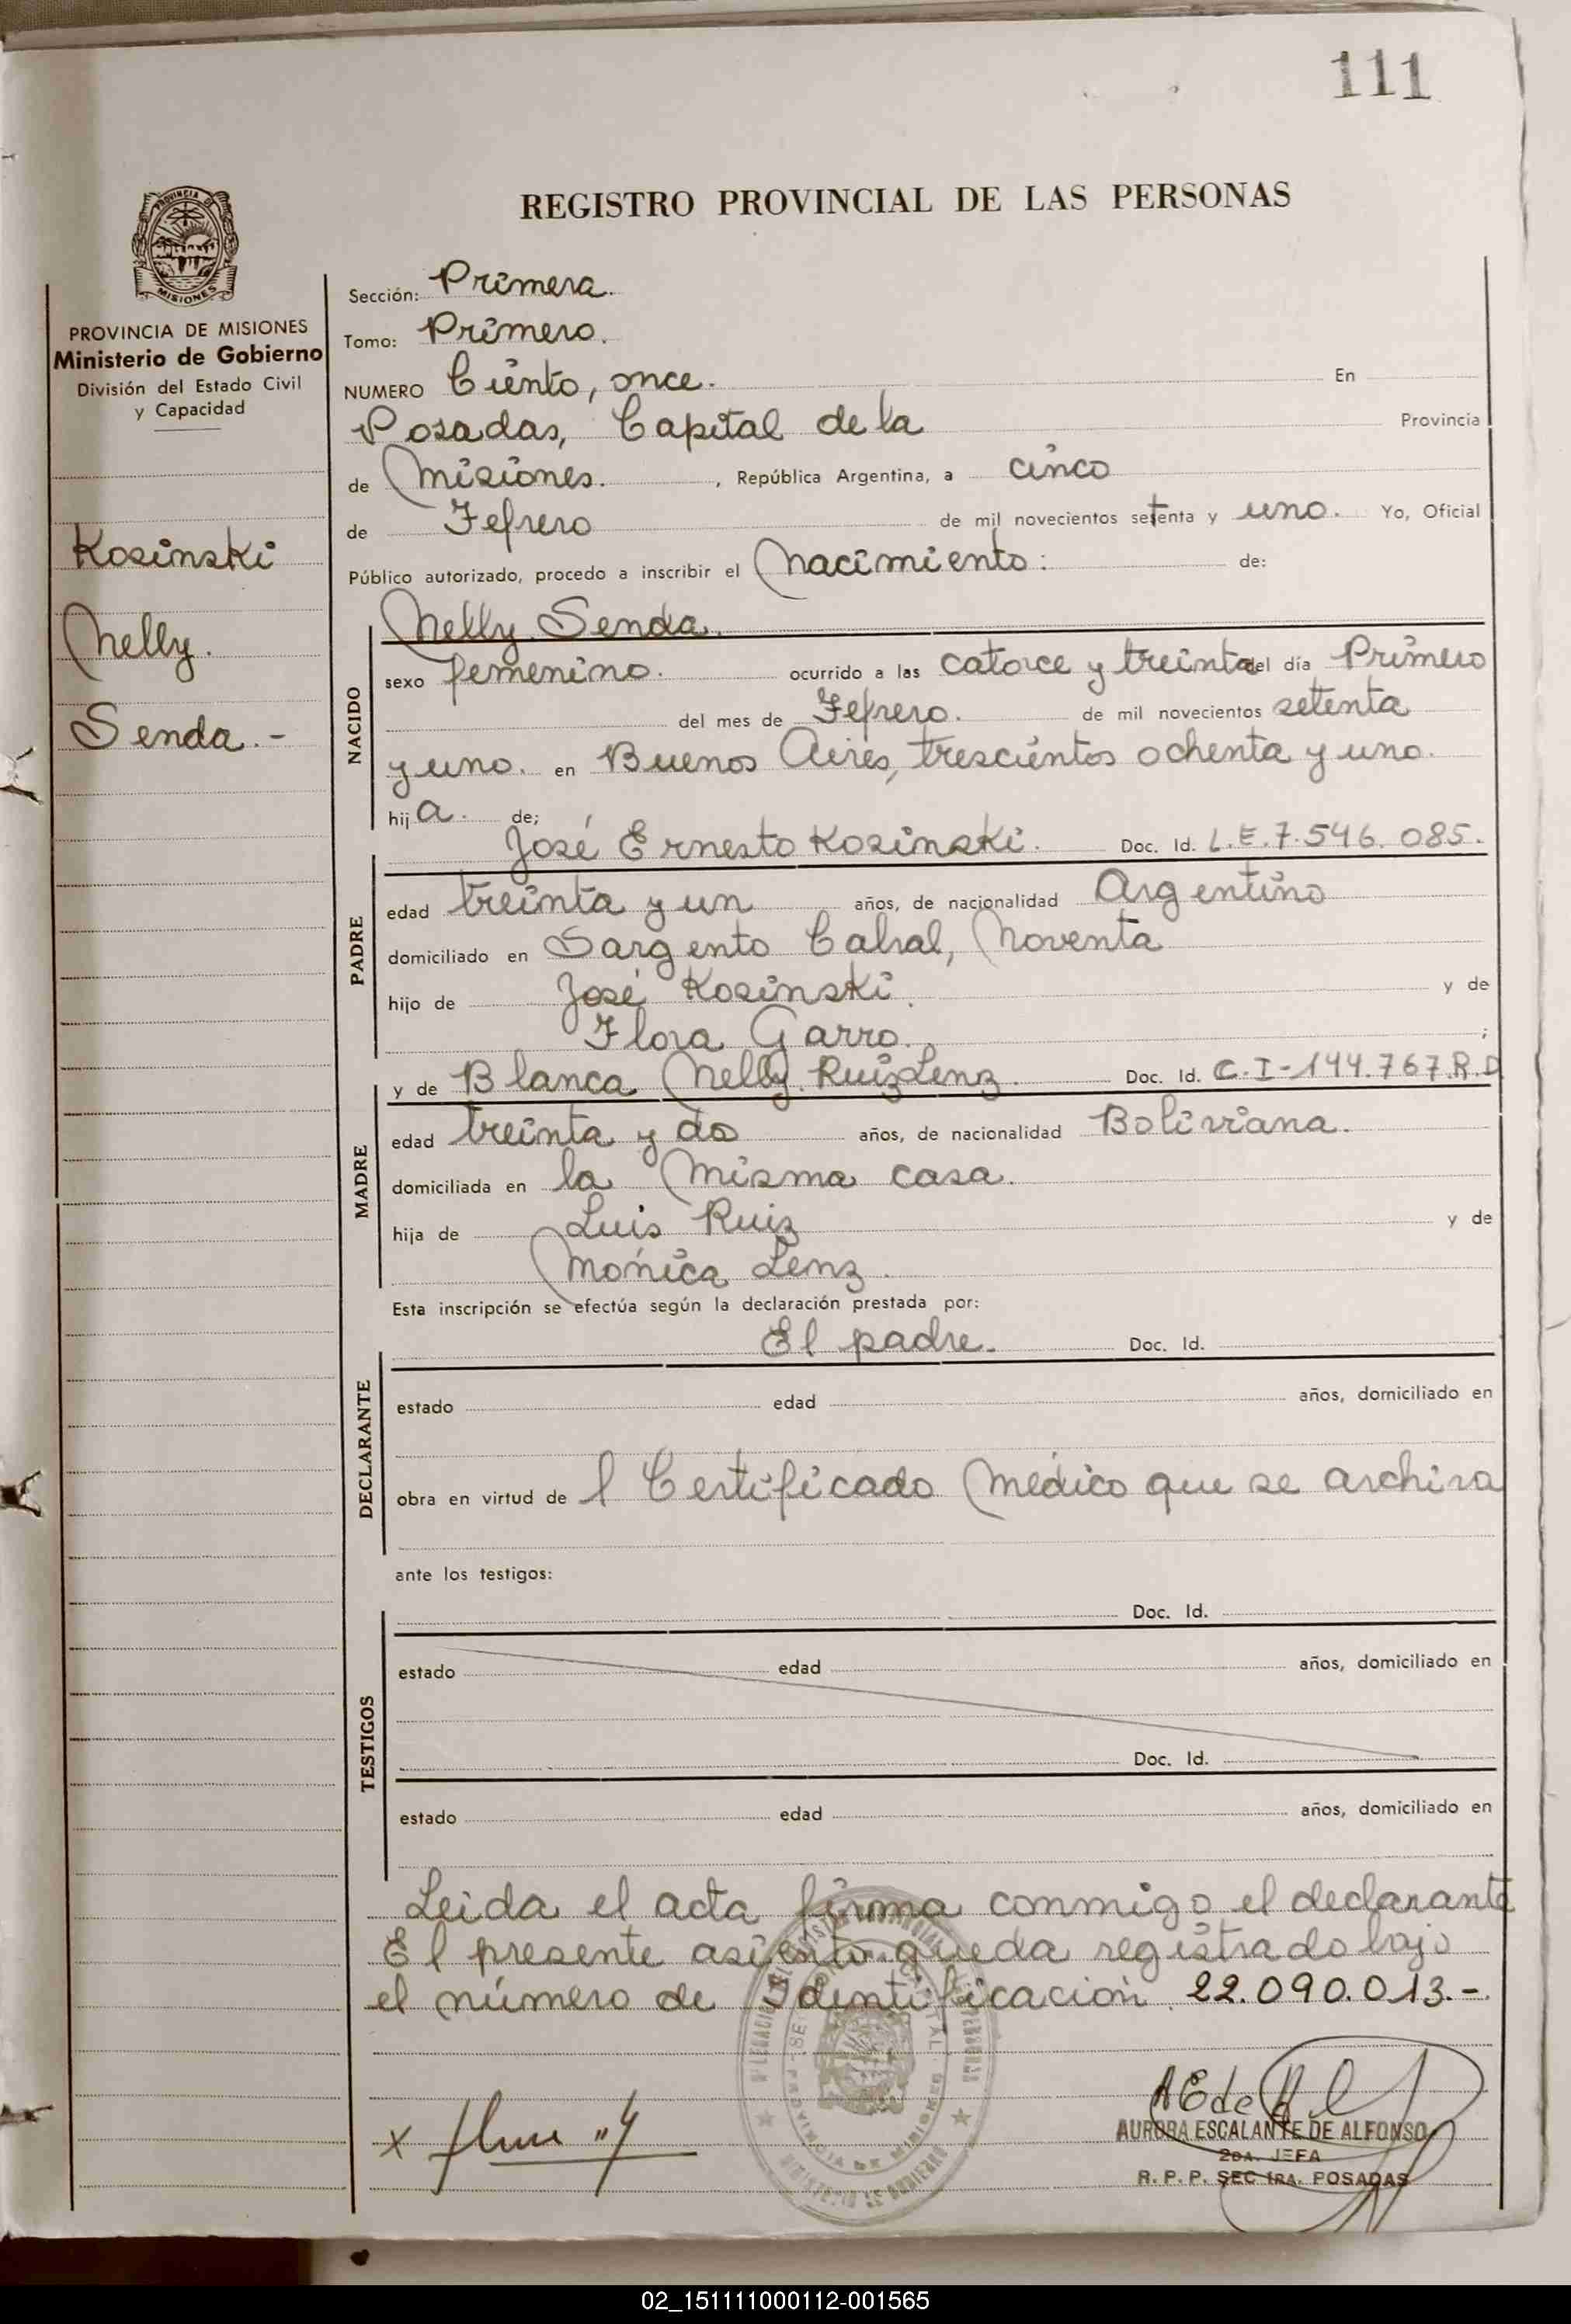 111
REGISTRO PROVINCIAL DE LAS PERSONAS
MISIONES
PROVINCIA DE MISIONES
Ministerio de Gobierno
División del Estado Civil
y Capacidad
Kosinski
Nelly.
Senda.-
Sección: Primera.
Tomo: Primero.
NUMERO Ciento, once. En
Posadas, Capital de la Provincia
de Misiones. , República Argentina, a cinco
de Febrero de mil novecientos setenta y uno. Yo, Oficial
Público autorizado, procedo a inscribir el Nacimiento: de:
Nelly Senda.
NACIDO
sexo femenino. ocurrido a las catorce y treinta del día Primero
del mes de Febrero. de mil novecientos setenta
y uno. en Buenos Aires, trescientos ochenta y uno.
hij a. de;
José Ernesto Kosinski. Doc. Id. L.E.7.546.085.
PADRE
edad treinta y un años, de nacionalidad Argentino
domiciliado en Sargento Cabral, Noventa
hijo de José Kosinski. y de
Flora Garro. ;
y de Blanca Nelly Ruiz Lenz. Doc. Id. C.I-144.767.R.D
MADRE
edad treinta y dos años, de nacionalidad Boliviana.
domiciliada en la Misma casa.
hija de Luis Ruiz y de
Mónica Lenz.
Esta inscripción se efectúa según la declaración prestada por:
El padre. Doc. Id.
DECLARANTE
estado edad años, domiciliado en
obra en virtud de l Certificado Médico que se archiva
ante los testigos:
Doc. Id.
TESTIGOS
estado edad años, domiciliado en
Doc. Id.
estado edad años, domiciliado en
Leida el acta firma conmigo el declarante
El presente asiento queda registrado bajo
el número de Identificación 22.090.013.-
X
AURORA ESCALANTE DE ALFONSO
2DA. JEFA
R. P. P. SEC 1RA. POSADAS
02_151111000112-001565